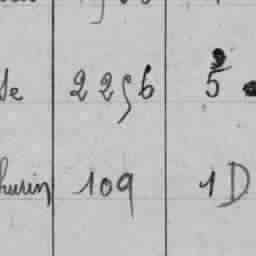 de 2256 5
hurin 109 1D